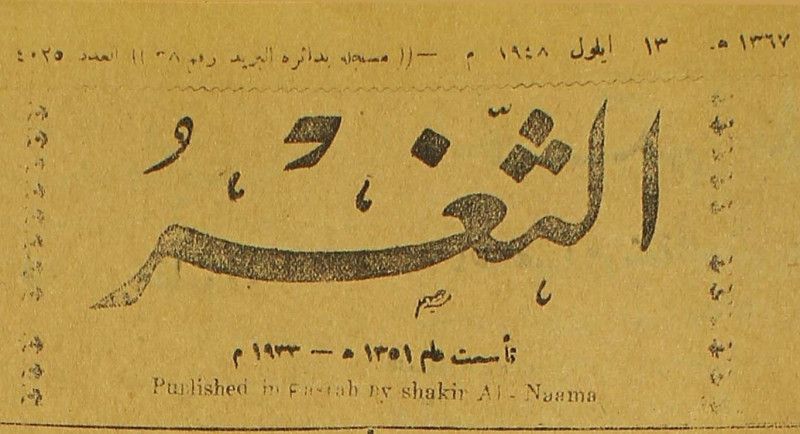 ١٣٦٧ هـ ١٣ ايلول ١٩٤٨ م — (( مسجله بدائره البريد رقم ٦٨ )) العدد ٤٠٢٥
الثَّغْرُ
تأسست عام ١٣٥١ ه — ١٩٣٣ م
Published in Basrah by shakir Al - Naama